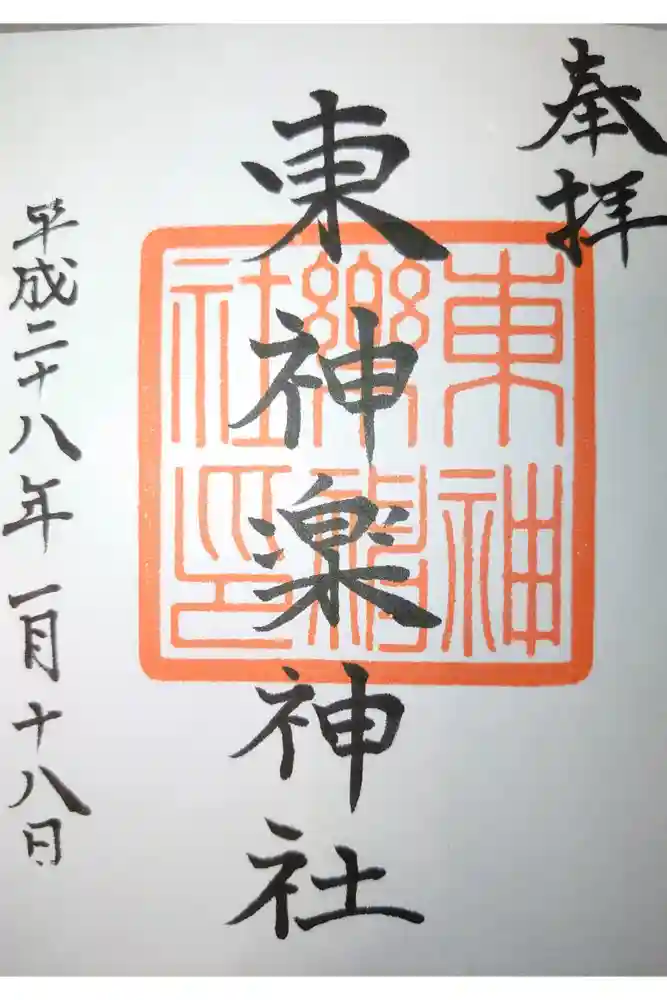 奉拝
東神楽神社
東神
樂神
社印
平成二十八年一月十八日